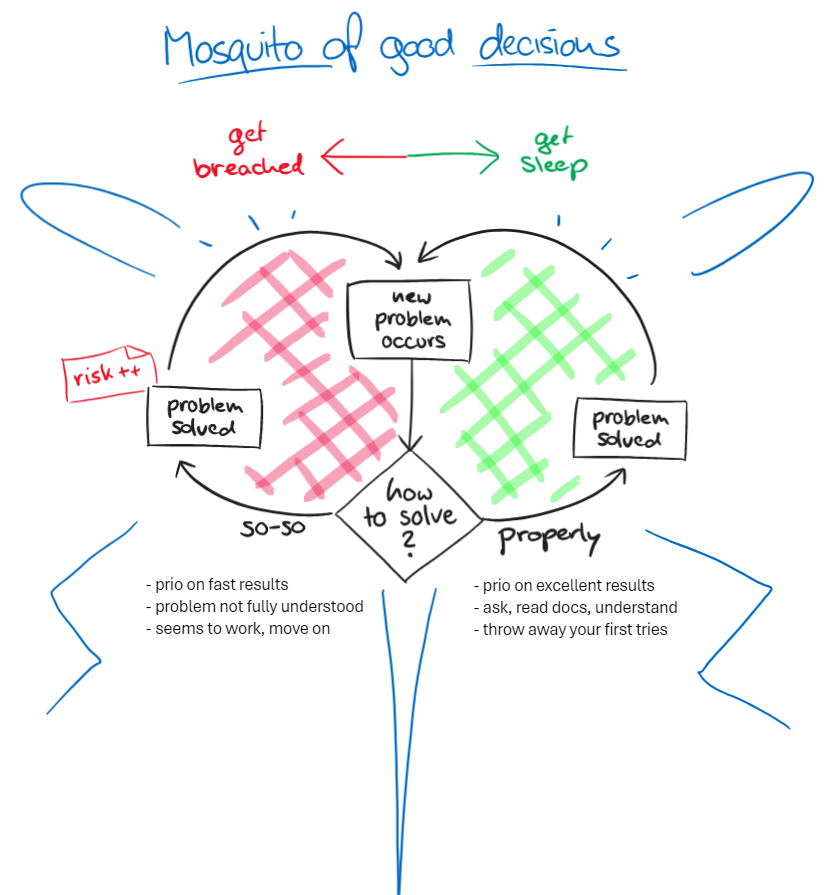 Mosquito of good decisions
get
breached
get
sleep
new
problem
occurs
risk ++
problem
solved
problem
solved
how
to solve
?
so-so
properly
- prio on fast results
- problem not fully understood
- seems to work, move on
- prio on excellent results
- ask, read docs, understand
- throw away your first tries